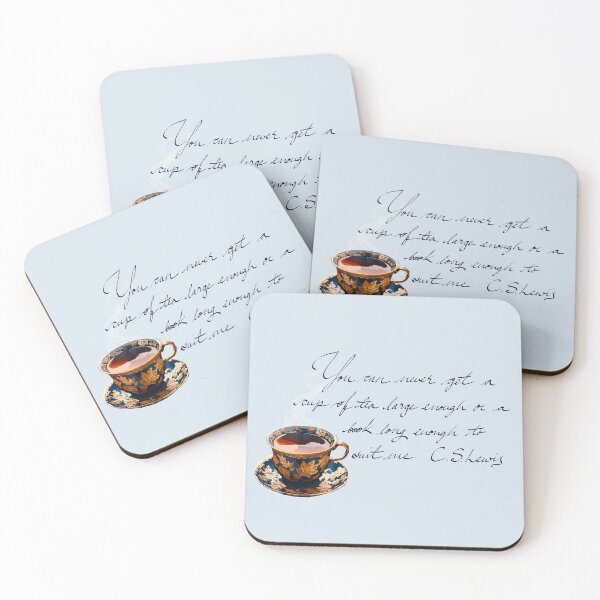 You can never get a
cup of tea large enough
enough
C.S
You can never get a
cup of tea large enough or a
book long enough to
suit me C.S Lewis
You can never get a
cup of tea large enough or a
book long enough to
suit me
You can never get a
cup of tea large enough or a
book long enough to
suit me C.S Lewis